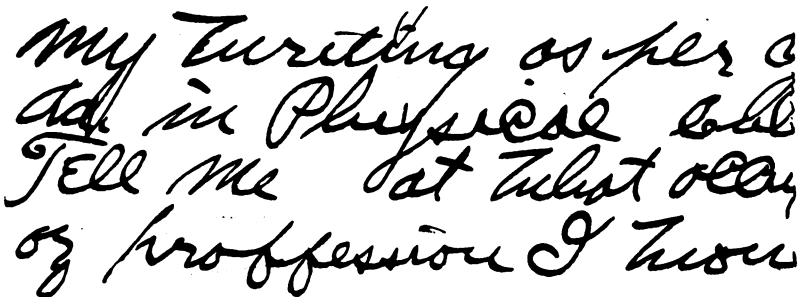 My writing as per
day in Physical
Tell me at what
or proffession I